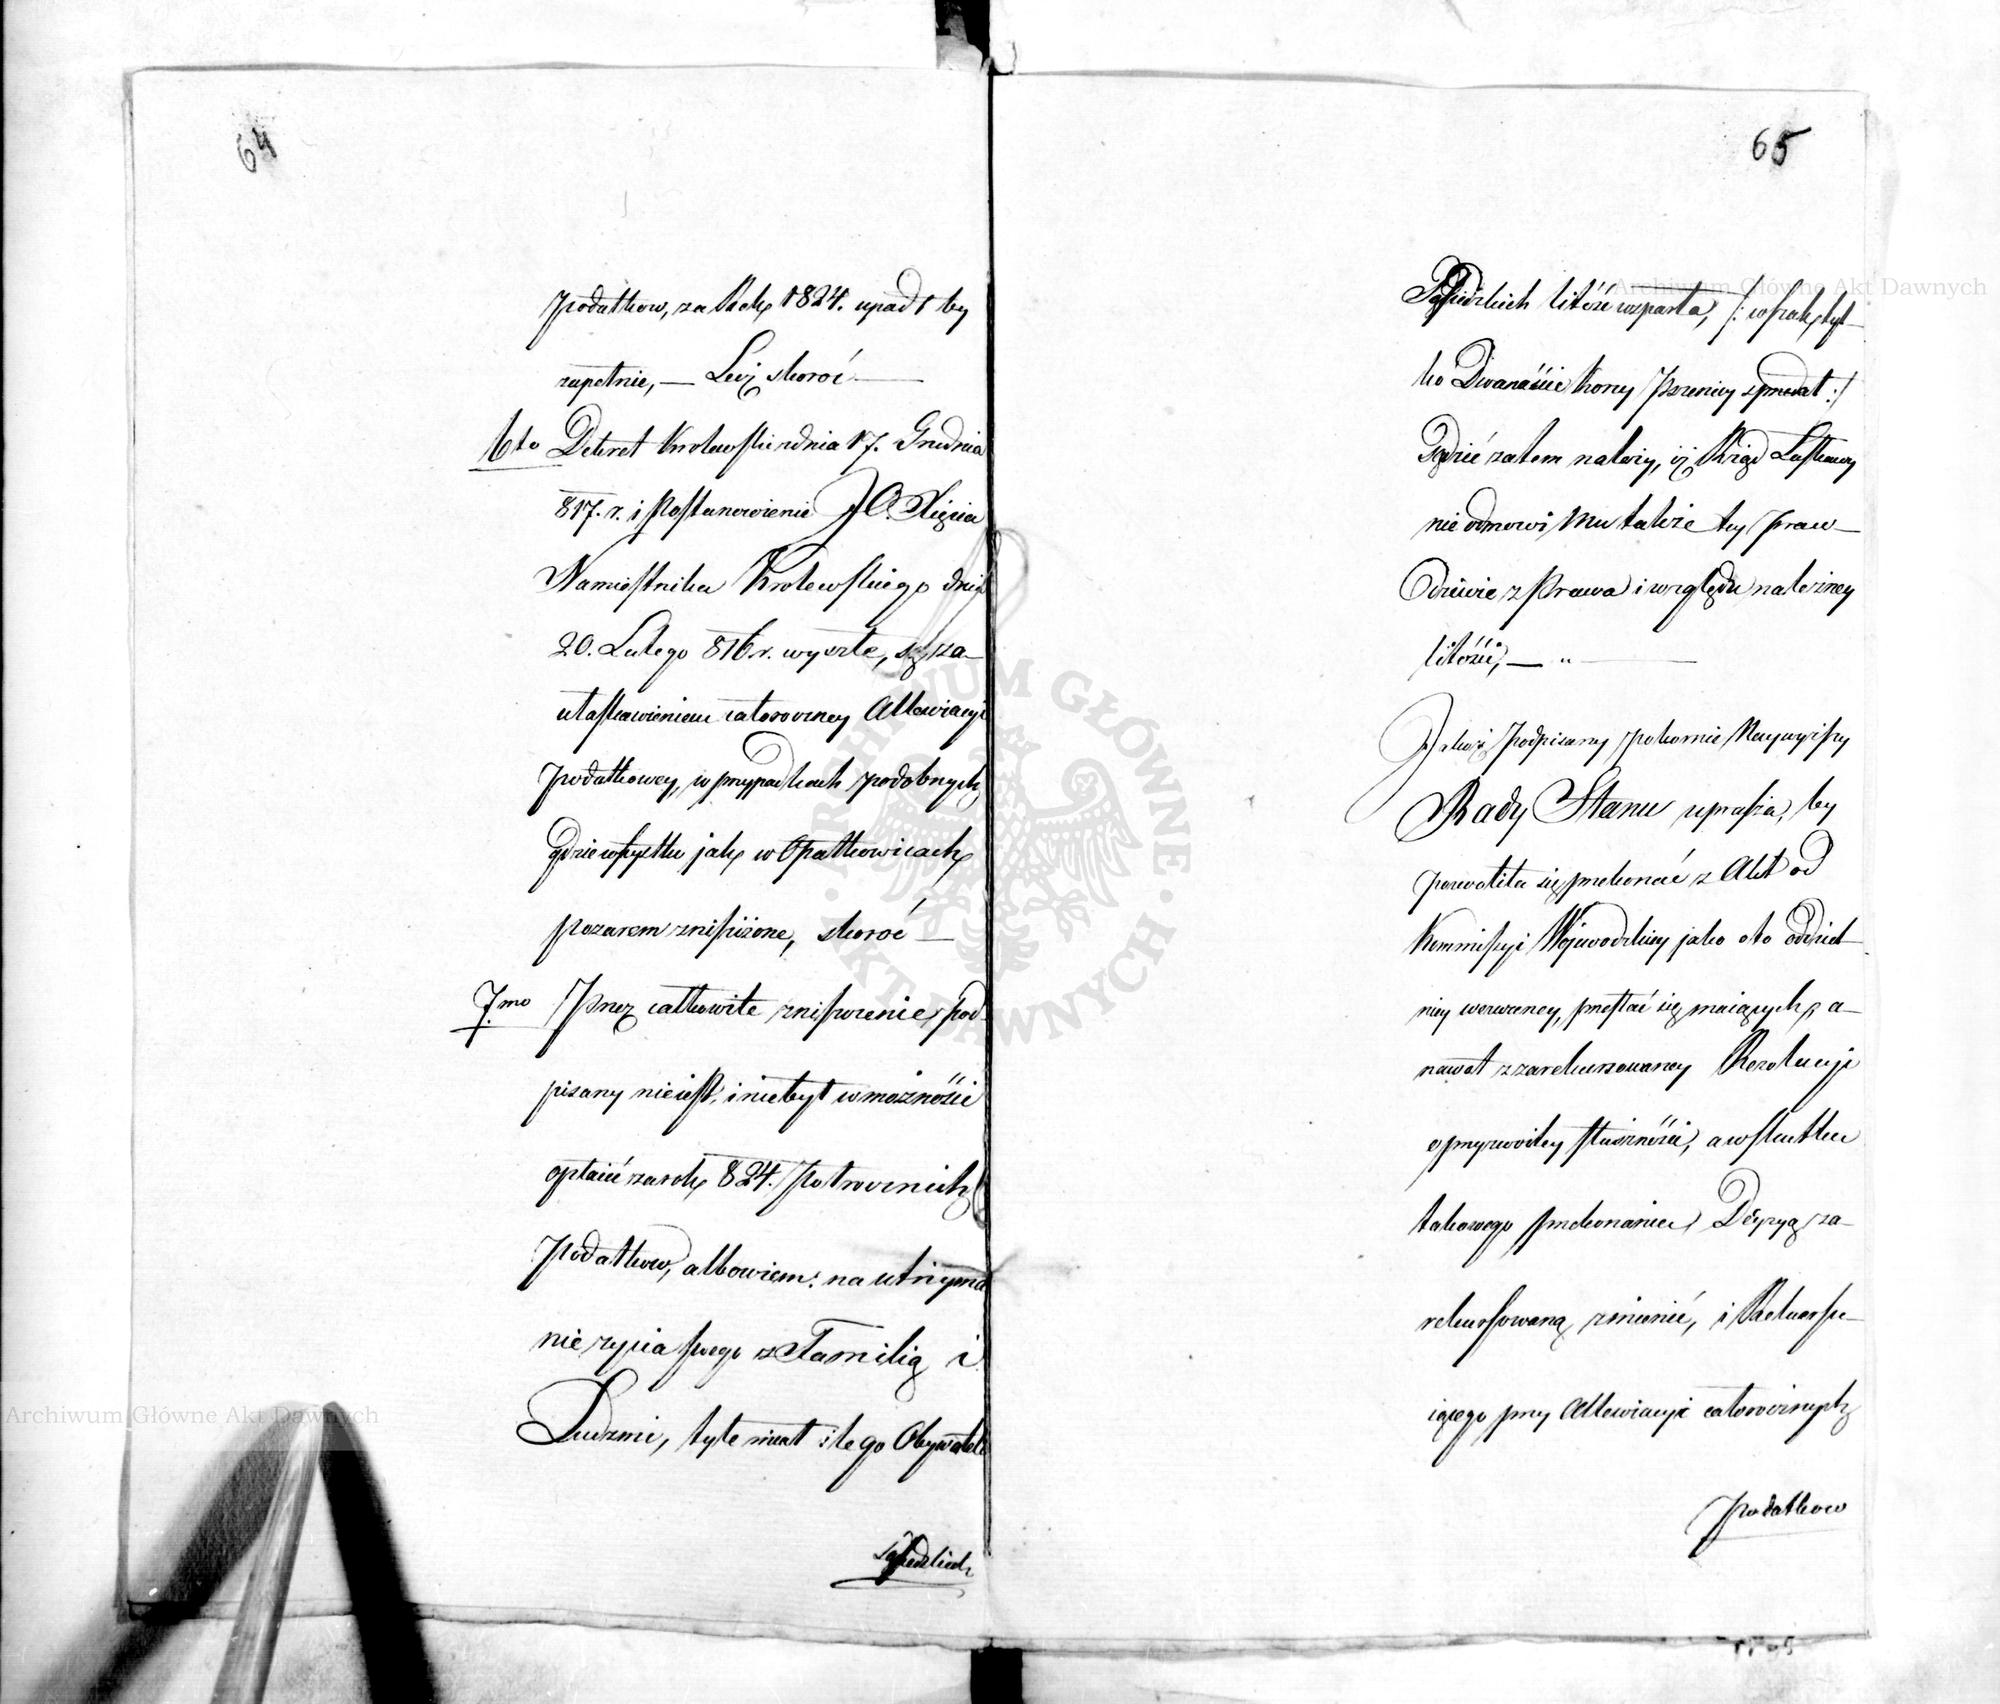 64
podatkow, za Rok 1824. upadł by
zupełnie, — Lecz skoro ć —
6to Dekret Krolewski z dnia 17. Grudnia
817. r. i Postanowienie JO. Xięcia
Namiestnika Krolewskiego dnia
20. Lutego 816 r. wyszłe, są za-
ułaskawieniem całoroczney Allewiacyi
podatkowey, w przypadkach podobnych
gdzie wszystko jak w Opatkowicach
pozarem zniszczone, skoro ć —
7mo Przez całkowite zniszczenie, pod-
pisany nieiest, i niebył w możności
opłacić za rok 824. Połrocznich
Podatkow, albowiem: na utrzyma
nie zycia swego z Familią i
Ludzmi, tyle miał ile go Obywateli
Sąsiedzkich
65
Sąsiedzkich litość wsparta, /: wszak tyl-
ko Dwanaście kony Pszenicy sprzedał :/
Sądzić zatem nalezy, iż Rząd Łaskawy
nie odmowi Mu także tey praw-
dziwie z Prawa i względu należney
litości, — „ —
Jakoż Podpisany pokornie Naywyższy
Rady Stanu uprasza, by
pozwoliła się przekonać z Akt od
Kommissyi Woiewodzkiey jako oto oddziel-
niey wezwaney, przesłać się maiących, a-
nawet z zarekursowaney Rezolucyi
o przyzwoitey słuszności, a w skutku
takowego przekonania, Decyzyą za-
rekursowaną zmienić, i Rekursu-
iącego przy Allewiacyi całorocznych
Podatkow
Archiwum Główne Akt Dawnych
Archiwum Główne Akt Dawnych
ARCHIWUM GŁÓWNE AKT DAWNYCH